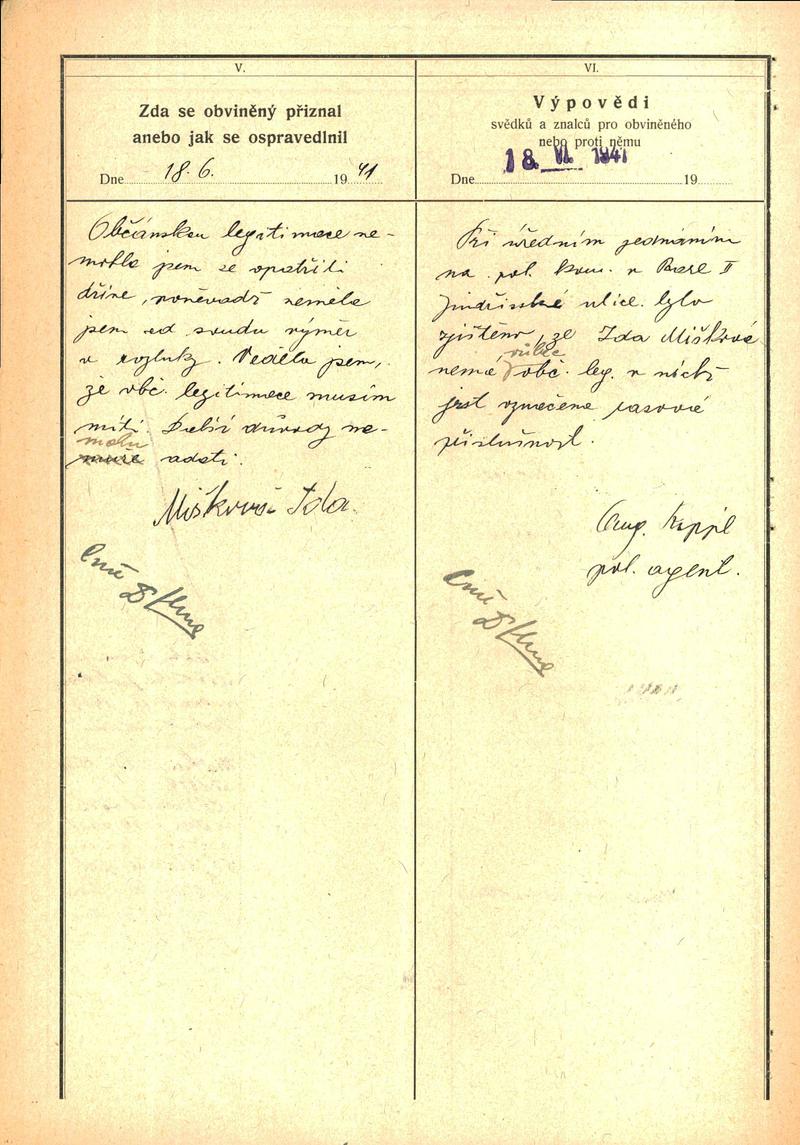 V.
Zda se obviněný přiznal
anebo jak se ospravedlnil
Dne 18. 6. 1941
Občanskou legitimace ne-
mohla jsem se opatřiti
dříve, poněvadž neměla
jsem od soudu výměr
o rozluky. Věděla jsem,
že obč. legitimace musím
míti. Další důvody ne-
mohu
udati.
Mišková Ida.
VI.
Výpovědi
svědků a znalců pro obviněného
nebo proti němu
Dne 18. VI. 1941 19
Při úředním jednáním
na pol. kom. v Praze II
Jindřišské ulice bylo
zjištěno, že Ida Miškové
nemá vůbec obč. leg. v nichž
jest označena rasové
příslušnost.
Aug. Keppl
pol. agent.